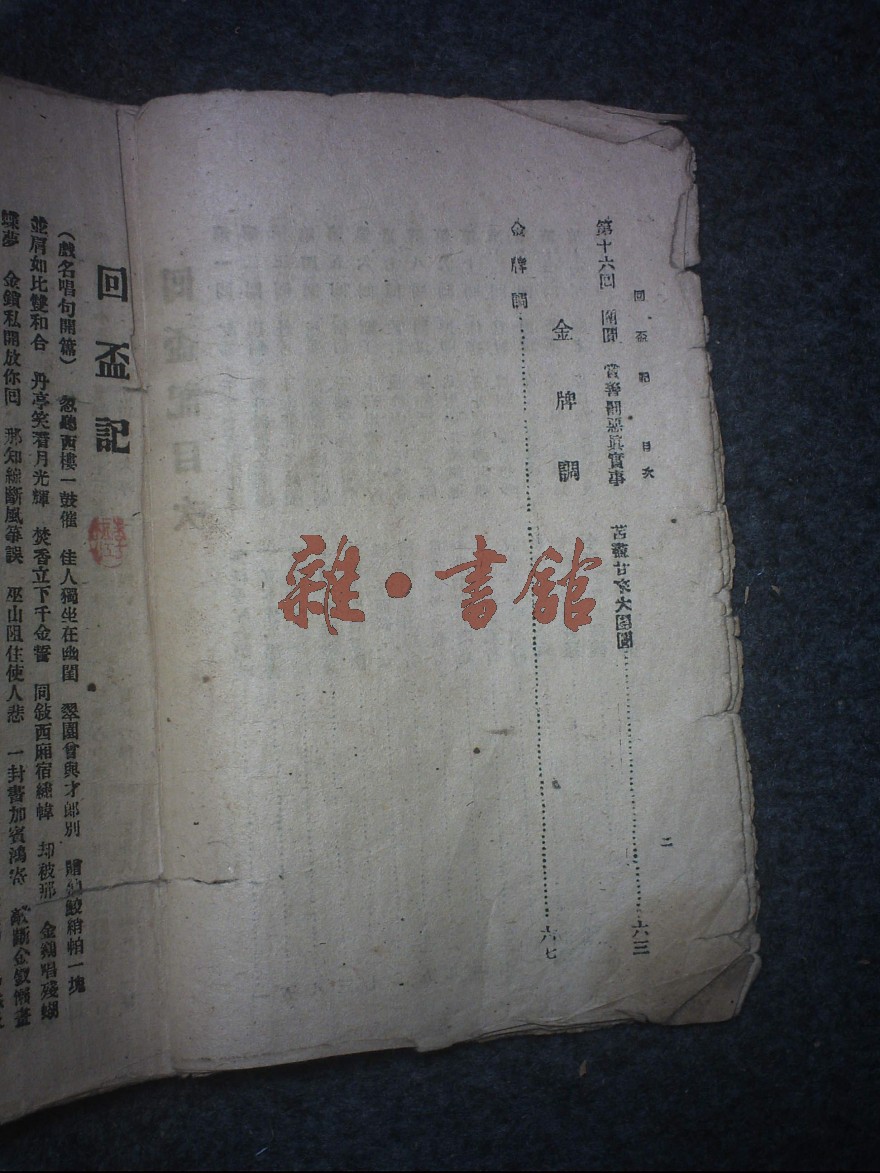 回盃記 目次
二
第十六回 團圓 賞善罰惡眞實事 苦盡甘來大團圓……六三
金牌調
金牌調……六七
雜·書館
回盃記
(戲名唱句開篇) 忽聽西樓一鼓催 佳人獨坐在幽閨 翠園會與才郎別 贈鮫綃帕一塊
並肩如比雙和合 丹亭笑看月光輝 焚香立下千金誓 同敍西厢宿繡幃 却被那 金鷄唱殘蝴
蝶夢 金鎖私開放你回 那知線斷風箏誤 巫山阻住使人悲 一封書加賓鴻寄 敲斷金釵懶畫